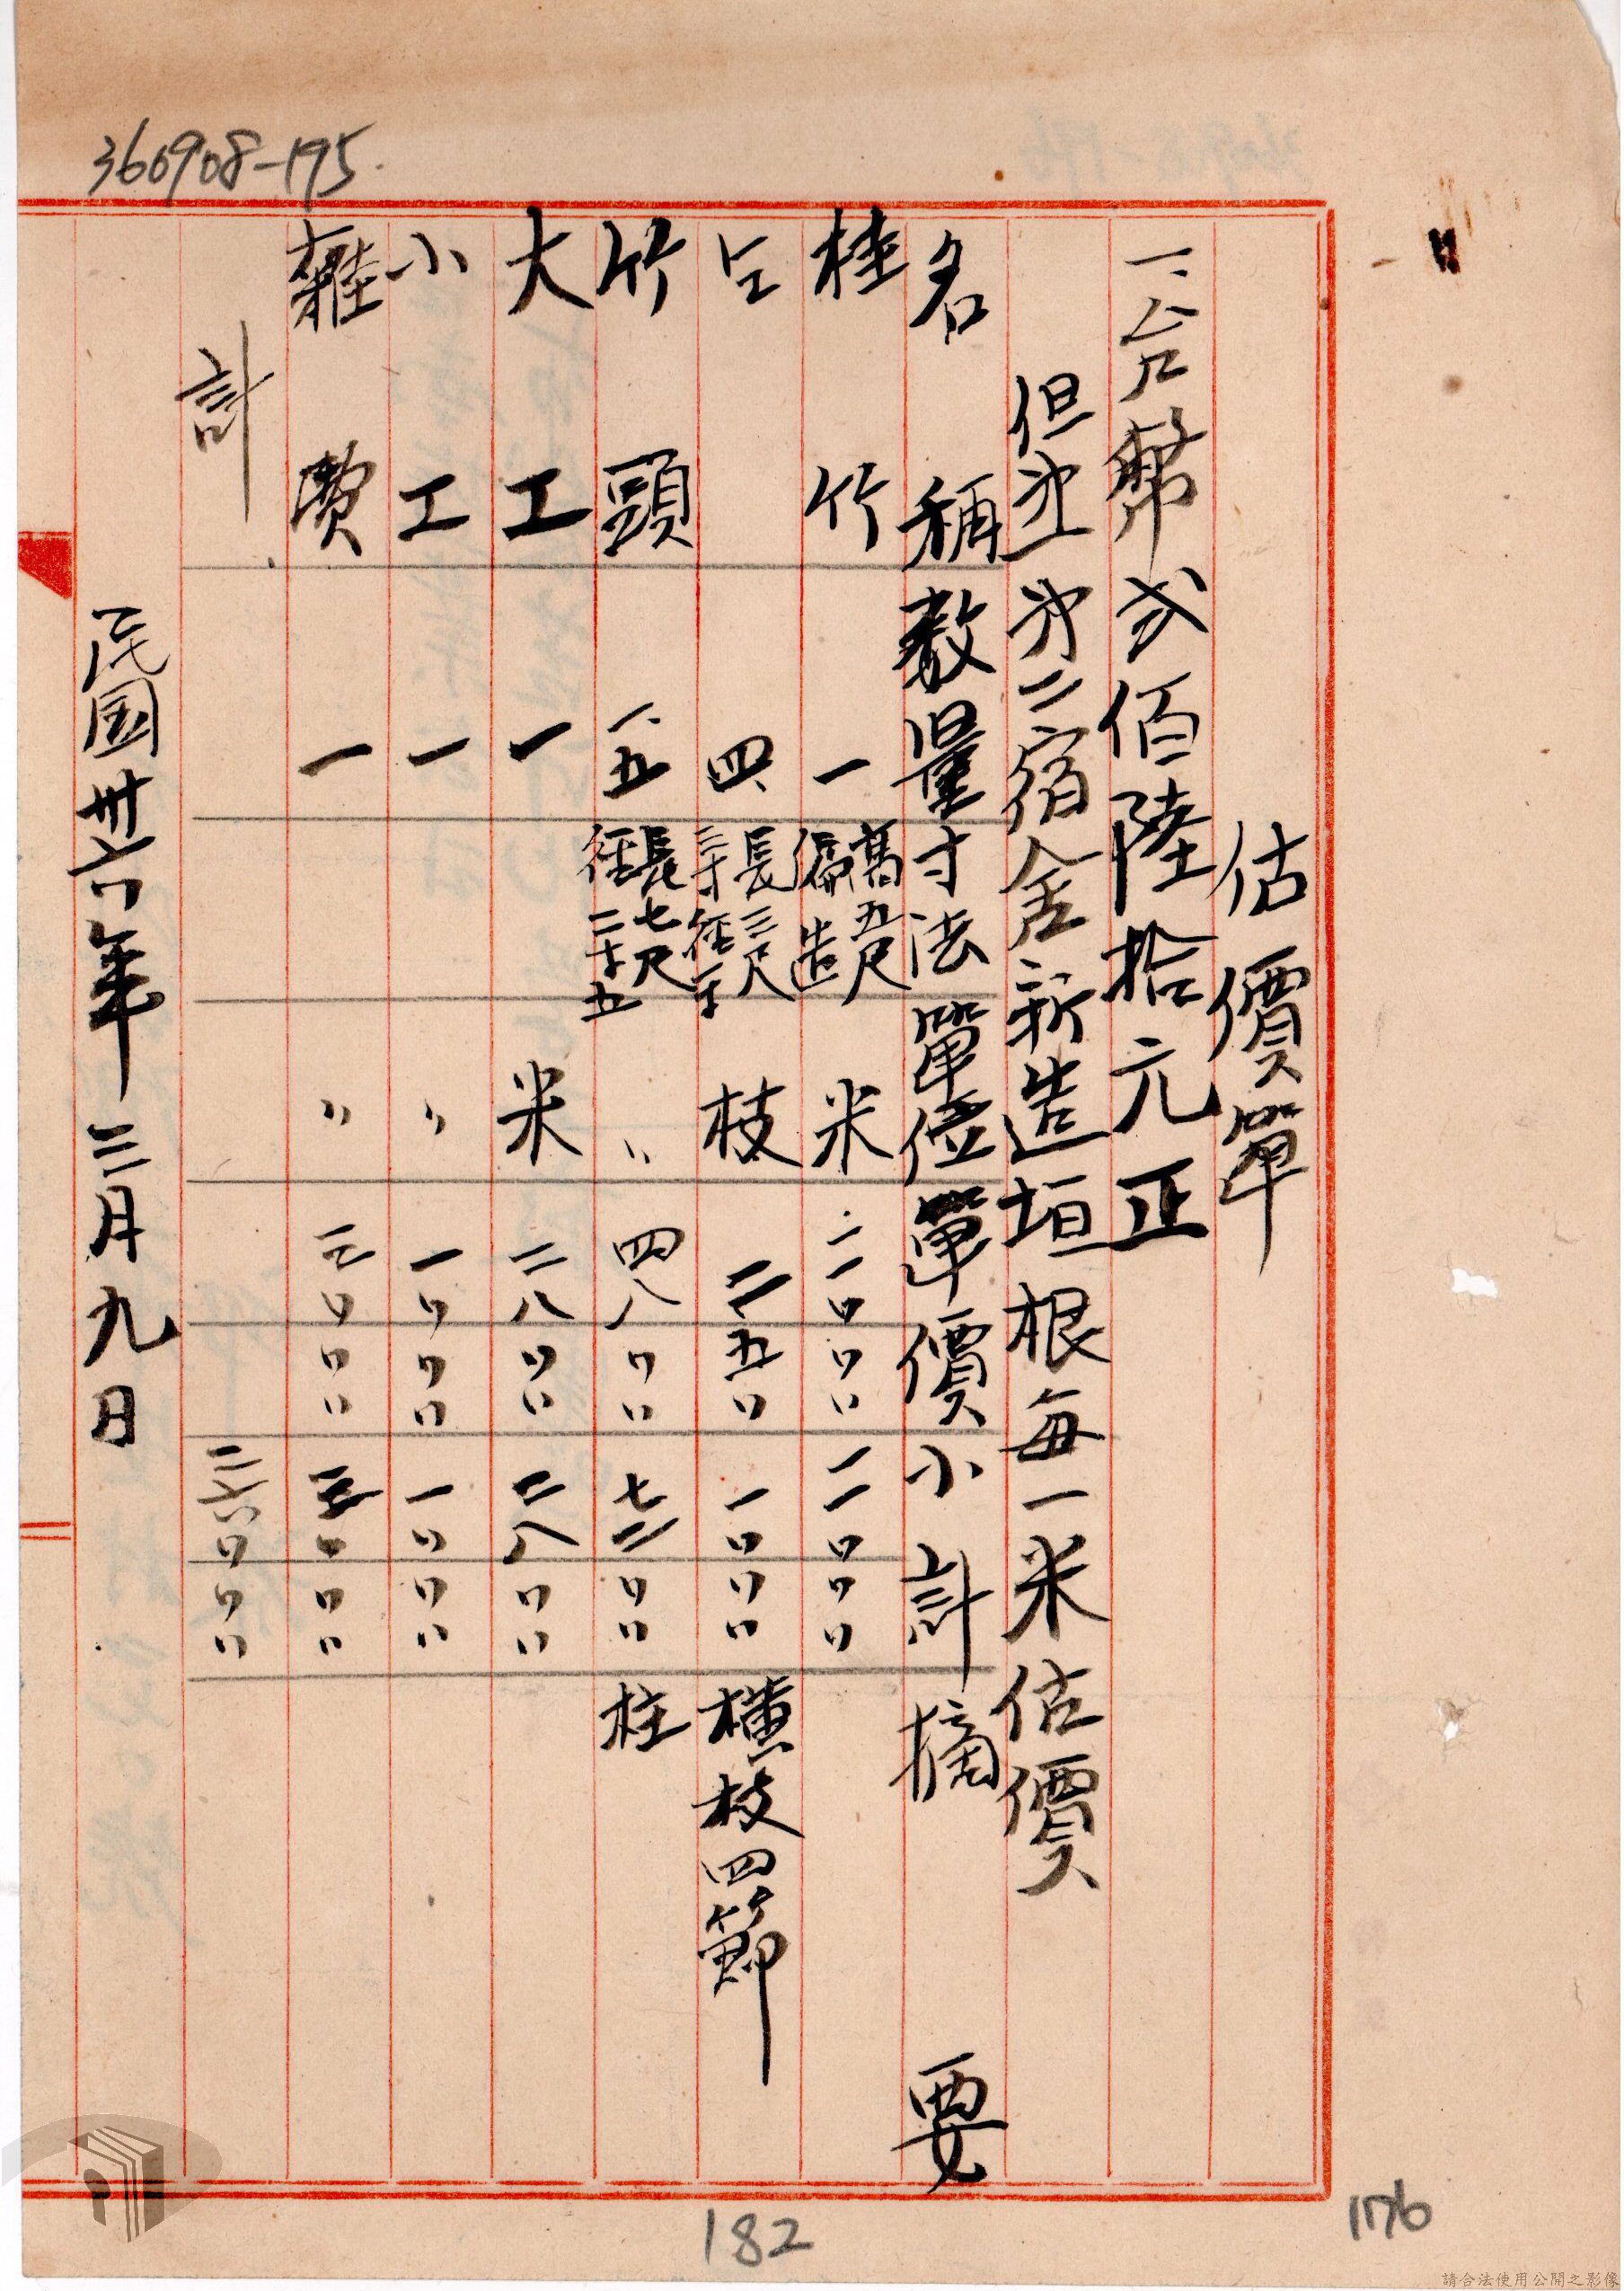 360908-195
估價單
一、台幣弍佰陸拾元正
但㐧一㐧二宿舍新造垣根每一米估價
名稱 數量 寸法 單位 單價 小計 摘要
桂竹 一 高五尺 偏造 米 一一〇〇〇 一一〇〇〇
四、 長三尺 枝 二五〇 一〇〇〇 横枝四節
竹頭 一、五 長七尺 徑二寸五 〃 四八〇〇 七二〇〇 柱
大工 一 米 二八〇〇 二八〇〇
小工 一 〃 一〇〇〇 一〇〇〇
雜費 一 〃 三〇〇〇 三〇〇〇
計 二六〇〇〇
民國卅六年三月九日
182
176
請合法使用公開之影像